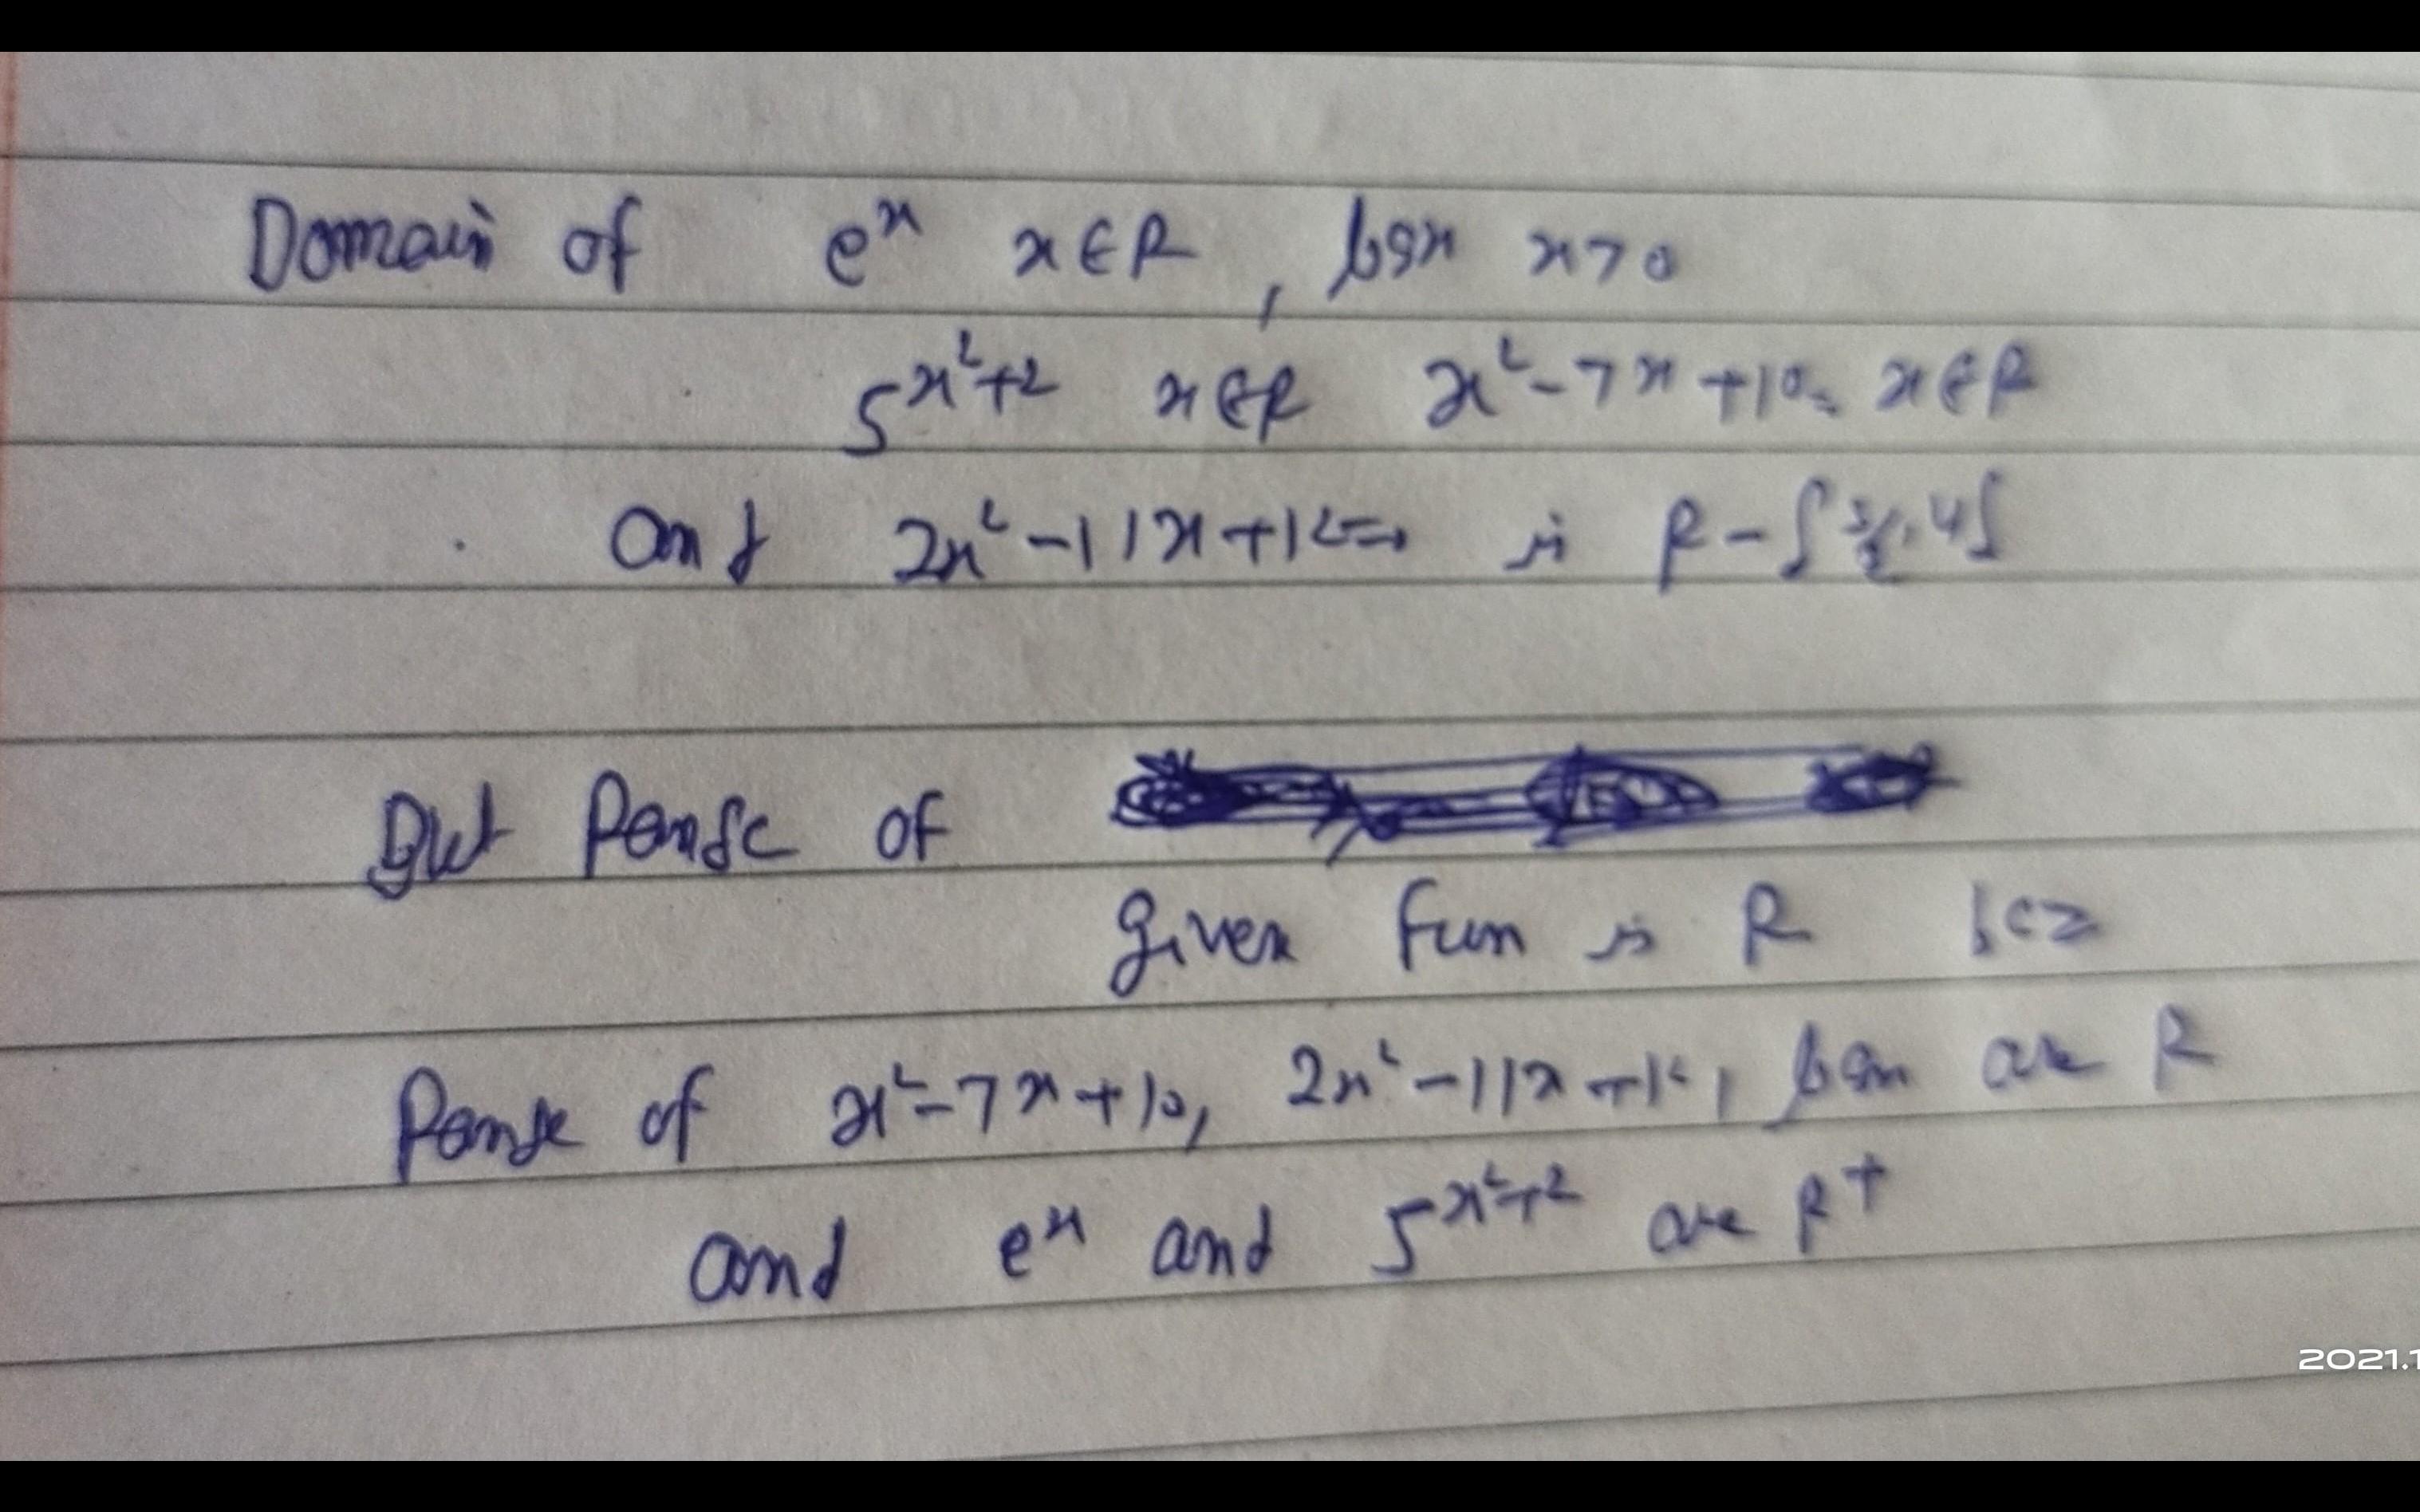 Domain of e^x x∈R, logx x>0
5^x²+2 x∈R x²-7x+10= x∈R
and 2x²-11x+12=0 is R-{3/2, 4}
But Range of
given fun is R bcz
Range of x²-7x+10, 2x²-11x+12, logx are R
and e^x and 5^x²+2 are R+
2021.1